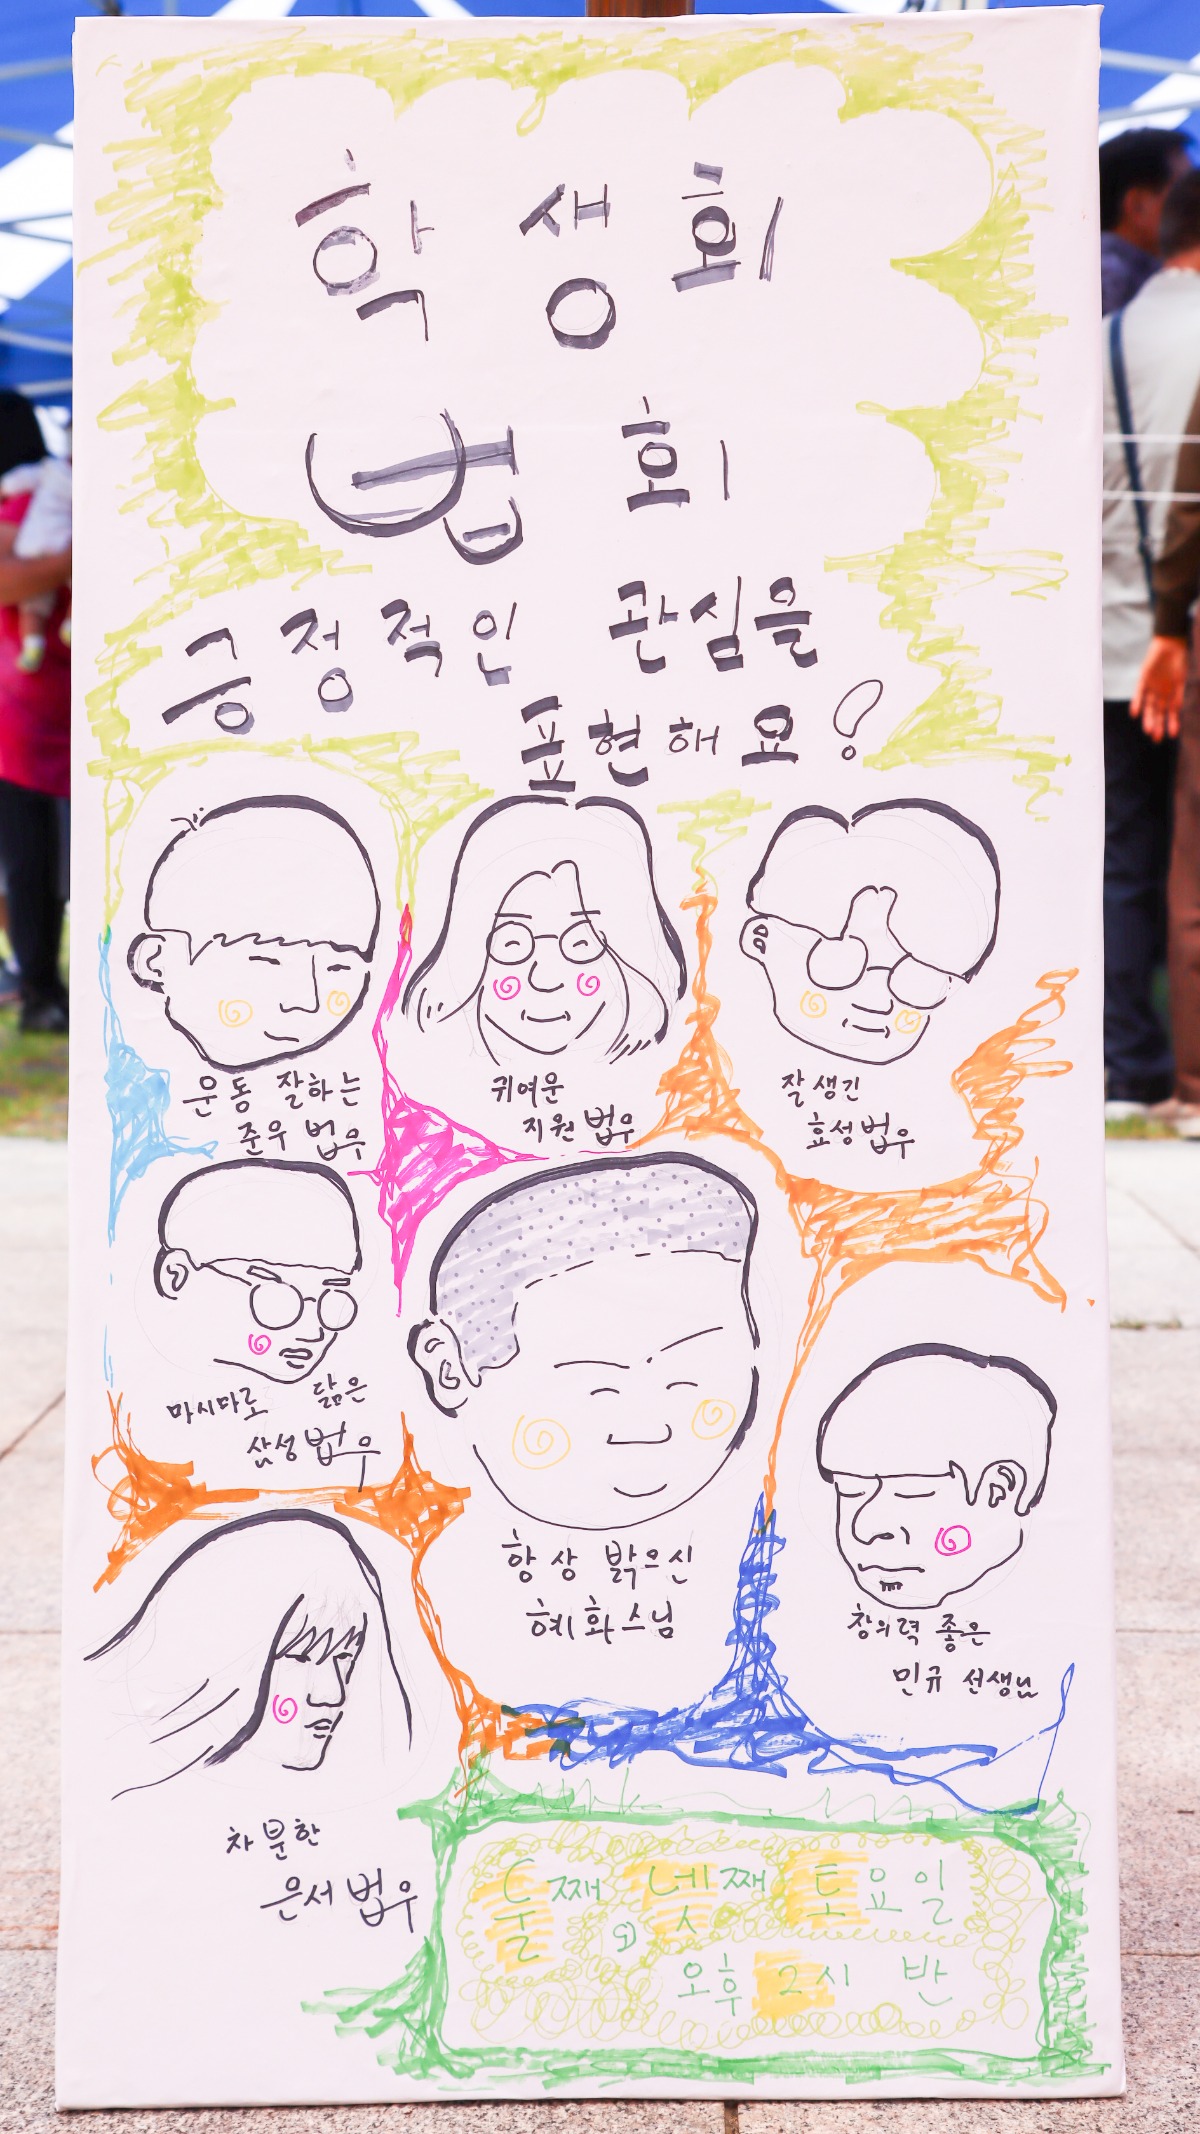 학생회
법회
긍정적인 관심을
표현해요!
운동 잘하는
준우 법우
귀여운
지원 법우
잘생긴
효성법우
마시마로 닮은
삼성법우
항상 밝으신
혜화스님
창의력 좋은
민규 선생님
차분한
은서 법우
둘째, 넷째 토요일
오후 2시 반